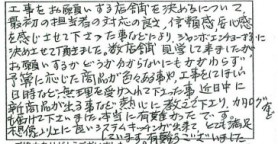 工事をお願いする店舗を決めるについて、
最初の担当者の対応の良さ、信頼感、安心感
を感じさせて下さった事などにより、ジャンボエンチョーさんに
決めさせて頂きました。数店舗 見学して来ましたが
お願いするかどうか分からないにもかかわらず
予算に応じた商品が色々ある事や、工事をしてほしい
日時なども無理を受け入れて下さった事 近日中に
新商品が出る事など 熱心に教えて下さり、カタログなど
も届けて下さいました。本当に有難かったです。
想像以上に良いシステムキッチンが出来て とても満足
しています。有難うございました